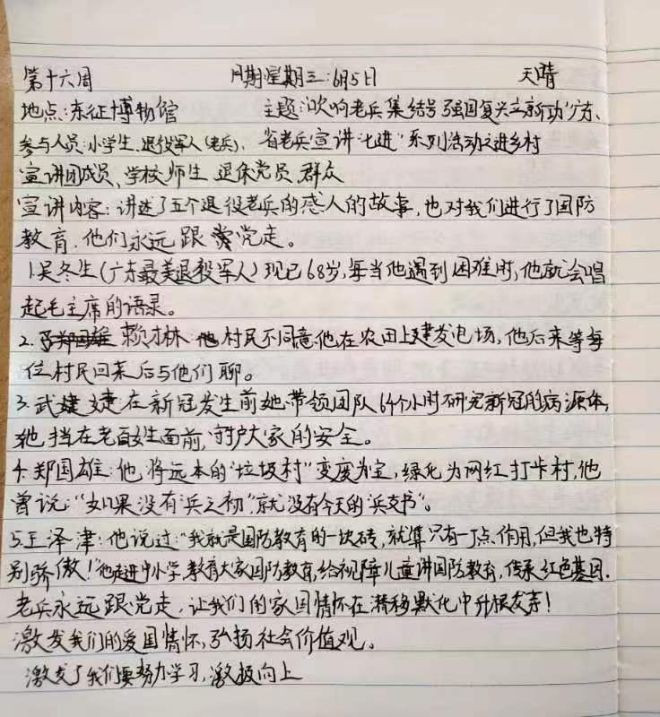 第十六周 日期:星期三:6月5日 天晴
地点:东征博物馆 主题:吹响老兵集结号 强国复兴立新功"广东、
参与人员:小学生、退役军人(老兵)、省老兵宣讲"七进"系列活动之进乡村
宣讲团成员、学校师生 退休党员、群众
宣讲内容:讲述了五个退役老兵的感人的故事,也对我们进行了国防
教育,他们永远跟党走。
1.吴冬生(广东最美退役军人)现已68岁,每当他遇到困难时,他就会唱
起毛主席的语录。
2.赖林:村民不同意他在农田上建发电场,他后来等每
位村民回来后与他们聊。
3.武婕:在新冠发生前她带领团队64个小时研究新冠的病源体,
她挡在老百姓面前,守护大家的安全。
4.郑国雄:他将远本的"垃圾村"变废为宝,绿化为网红打卡村,他
曾说:"如果没有兵之初"就没有今天的"兵支书"。
5.王泽津:他说过:"我就是国防教育的一块砖,就算只有一丁点作用,但我也特
别骄傲!"他走进中小学,教育大家国防教育,给视障儿童讲国防教育,传承红色基因.
老兵永远跟党走,让我们的家国情怀在潜移默化中升很发芽!
激发我们的爱国情怀,弘扬社会价值观。
激发了我们要努力学习,激极向上